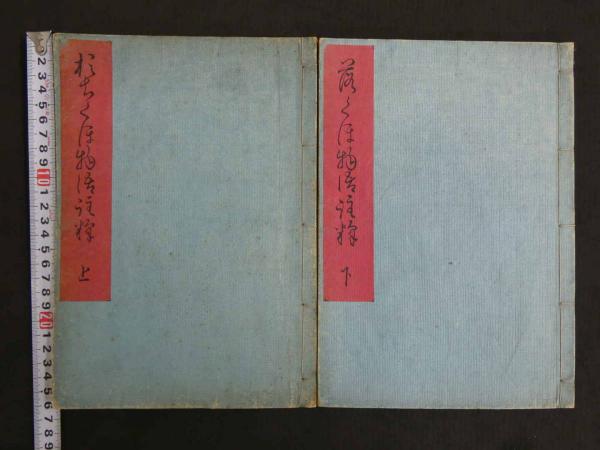 おちくほ物語註釋 上
落くほ物語註釋 下
2 3 4 5 6 7 8 9 10 1 2 3 4 5 6 7 8 9 20 1 2 3 4 5 6 7 8 9